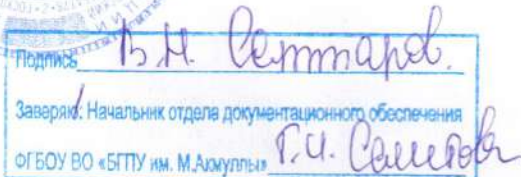 Подпись В.М. Саттаров.
Заверяю: Начальник отдела документационного обеспечения
ФГБОУ ВО «БГПУ им. М.Акмуллы» Г.И.